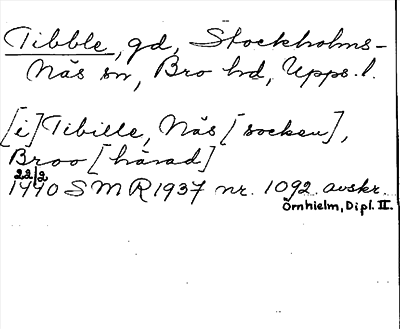 Tibble, gd, Stockholms-
Näs sn, Bro hd, Upps. l.
[i] Tibille, Näs [socken],
Broo [härad]
22/2
1440 SMR 1937 nr. 1092. avskr.
Örnhielm, Dipl. II.